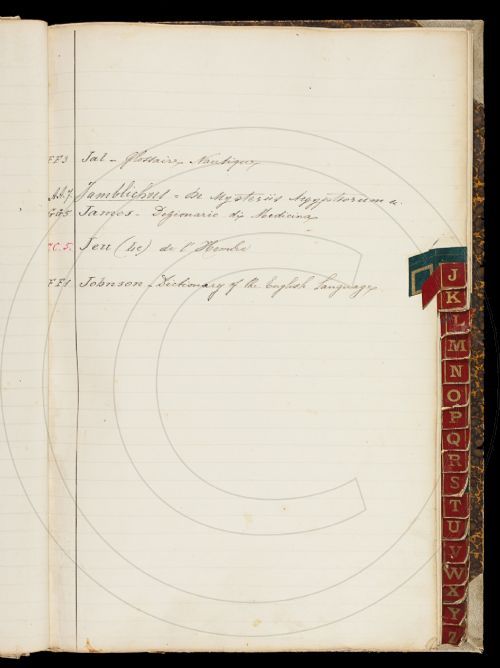 F.F.3 Jal - Glossaire Nautique
A.A.7. Jamblichus - De Mysteriis Aegyptiorum
G.G.5 James - Dizionario di Medicina
C.C.5. Jeu (Le) de l'Hombre
F.F.1 Johnson - Dictionary of the English Language
J
K
L
M
N
O
P
Q
R
S
T
U
V
W
X
Y
Z